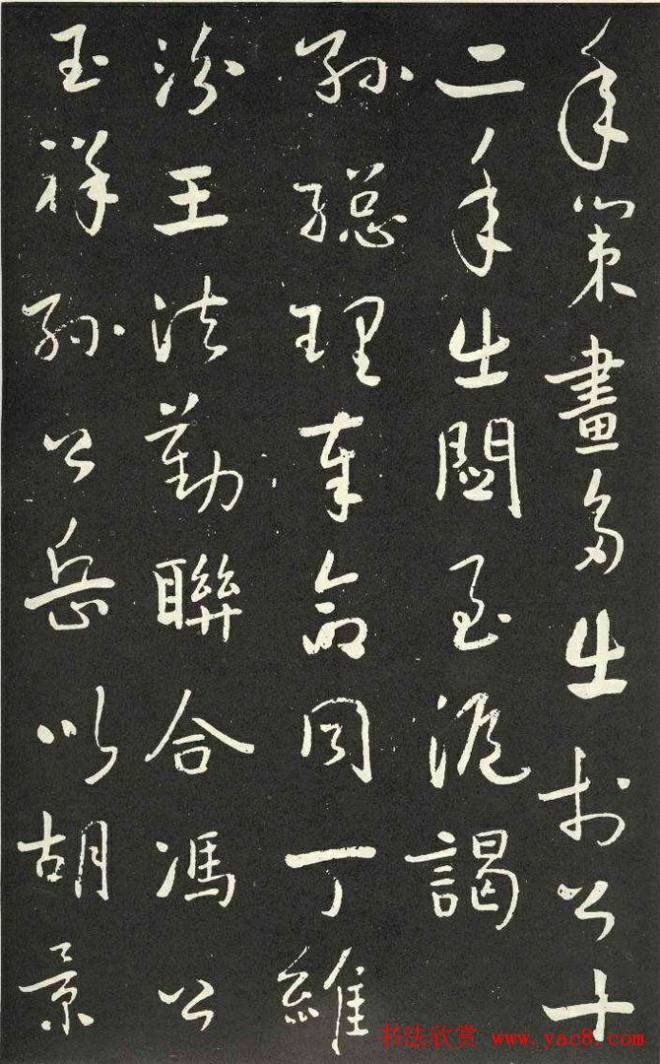 年策畫多出於公十
二年出關至滬謁
孫總理奉命同丁維
汾王法勤聯合馮公
玉祥孫公岳以胡景
书法欣赏 www.yac8.com